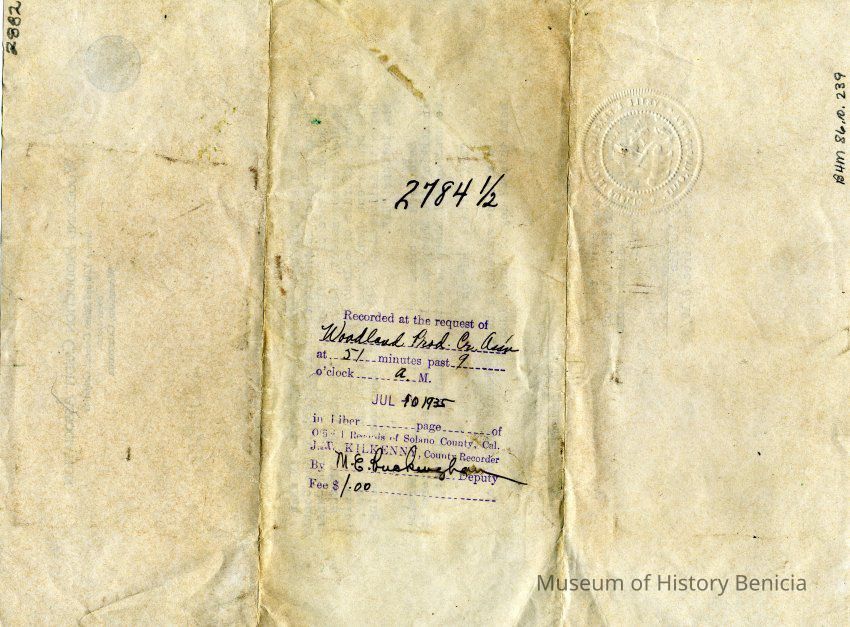 2882
B4M 86.10.239
2784 1/2
Recorded at the request of
Woodland Prod. Cr. Ass'n
at 51 minutes past 9
o'clock a. M.
JUL 10 1935
in Liber page of
Official Records of Solano County, Cal.
KILKENNY, County Recorder
By M.E. Buckingham Deputy
Fee $ 1.00
Museum of History Benicia